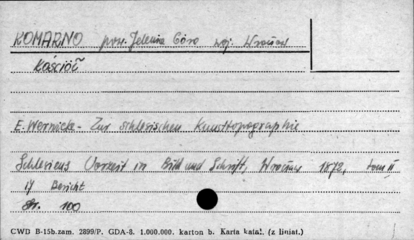 KOMARNO pow. Jelenia Góra woj. Wrocław
Kościół
E. Wernicke - Zur schlesischen Kunsttopographie
Schlesiens Vorzeit in Bild und Schrift, Wrocław 1872, tom II
17 Bericht
Str. 100
CWD B-15b. zam. 2899/P. GDA-8. 1.000.000. karton b. Karta katal. (z liniat.)